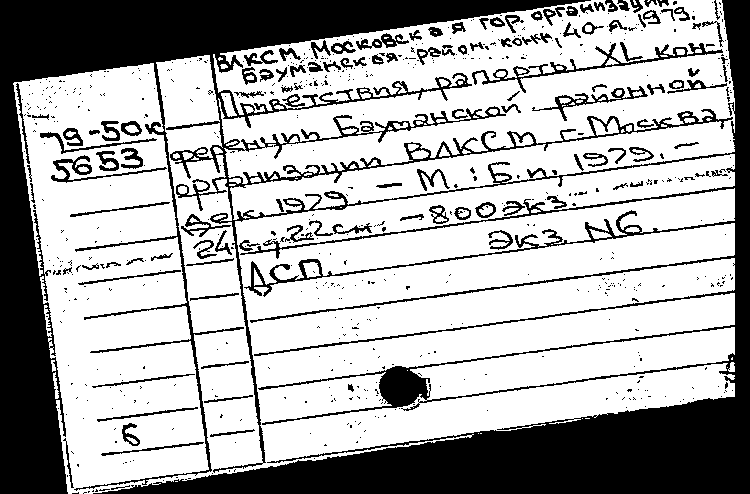 ВЛКСМ. Московская гор. организация.
Бауманская район. конф., 40-я. 1979.
Приветствия, рапорты XL кон-
79-50к
ференции Бауманской районной
5653
организации ВЛКСМ, г. Москва,
дек. 1979. — М.: Б.и., 1979. —
24 с.; 22 см. — 800 экз.
Экз. N6.
ДСП.
6